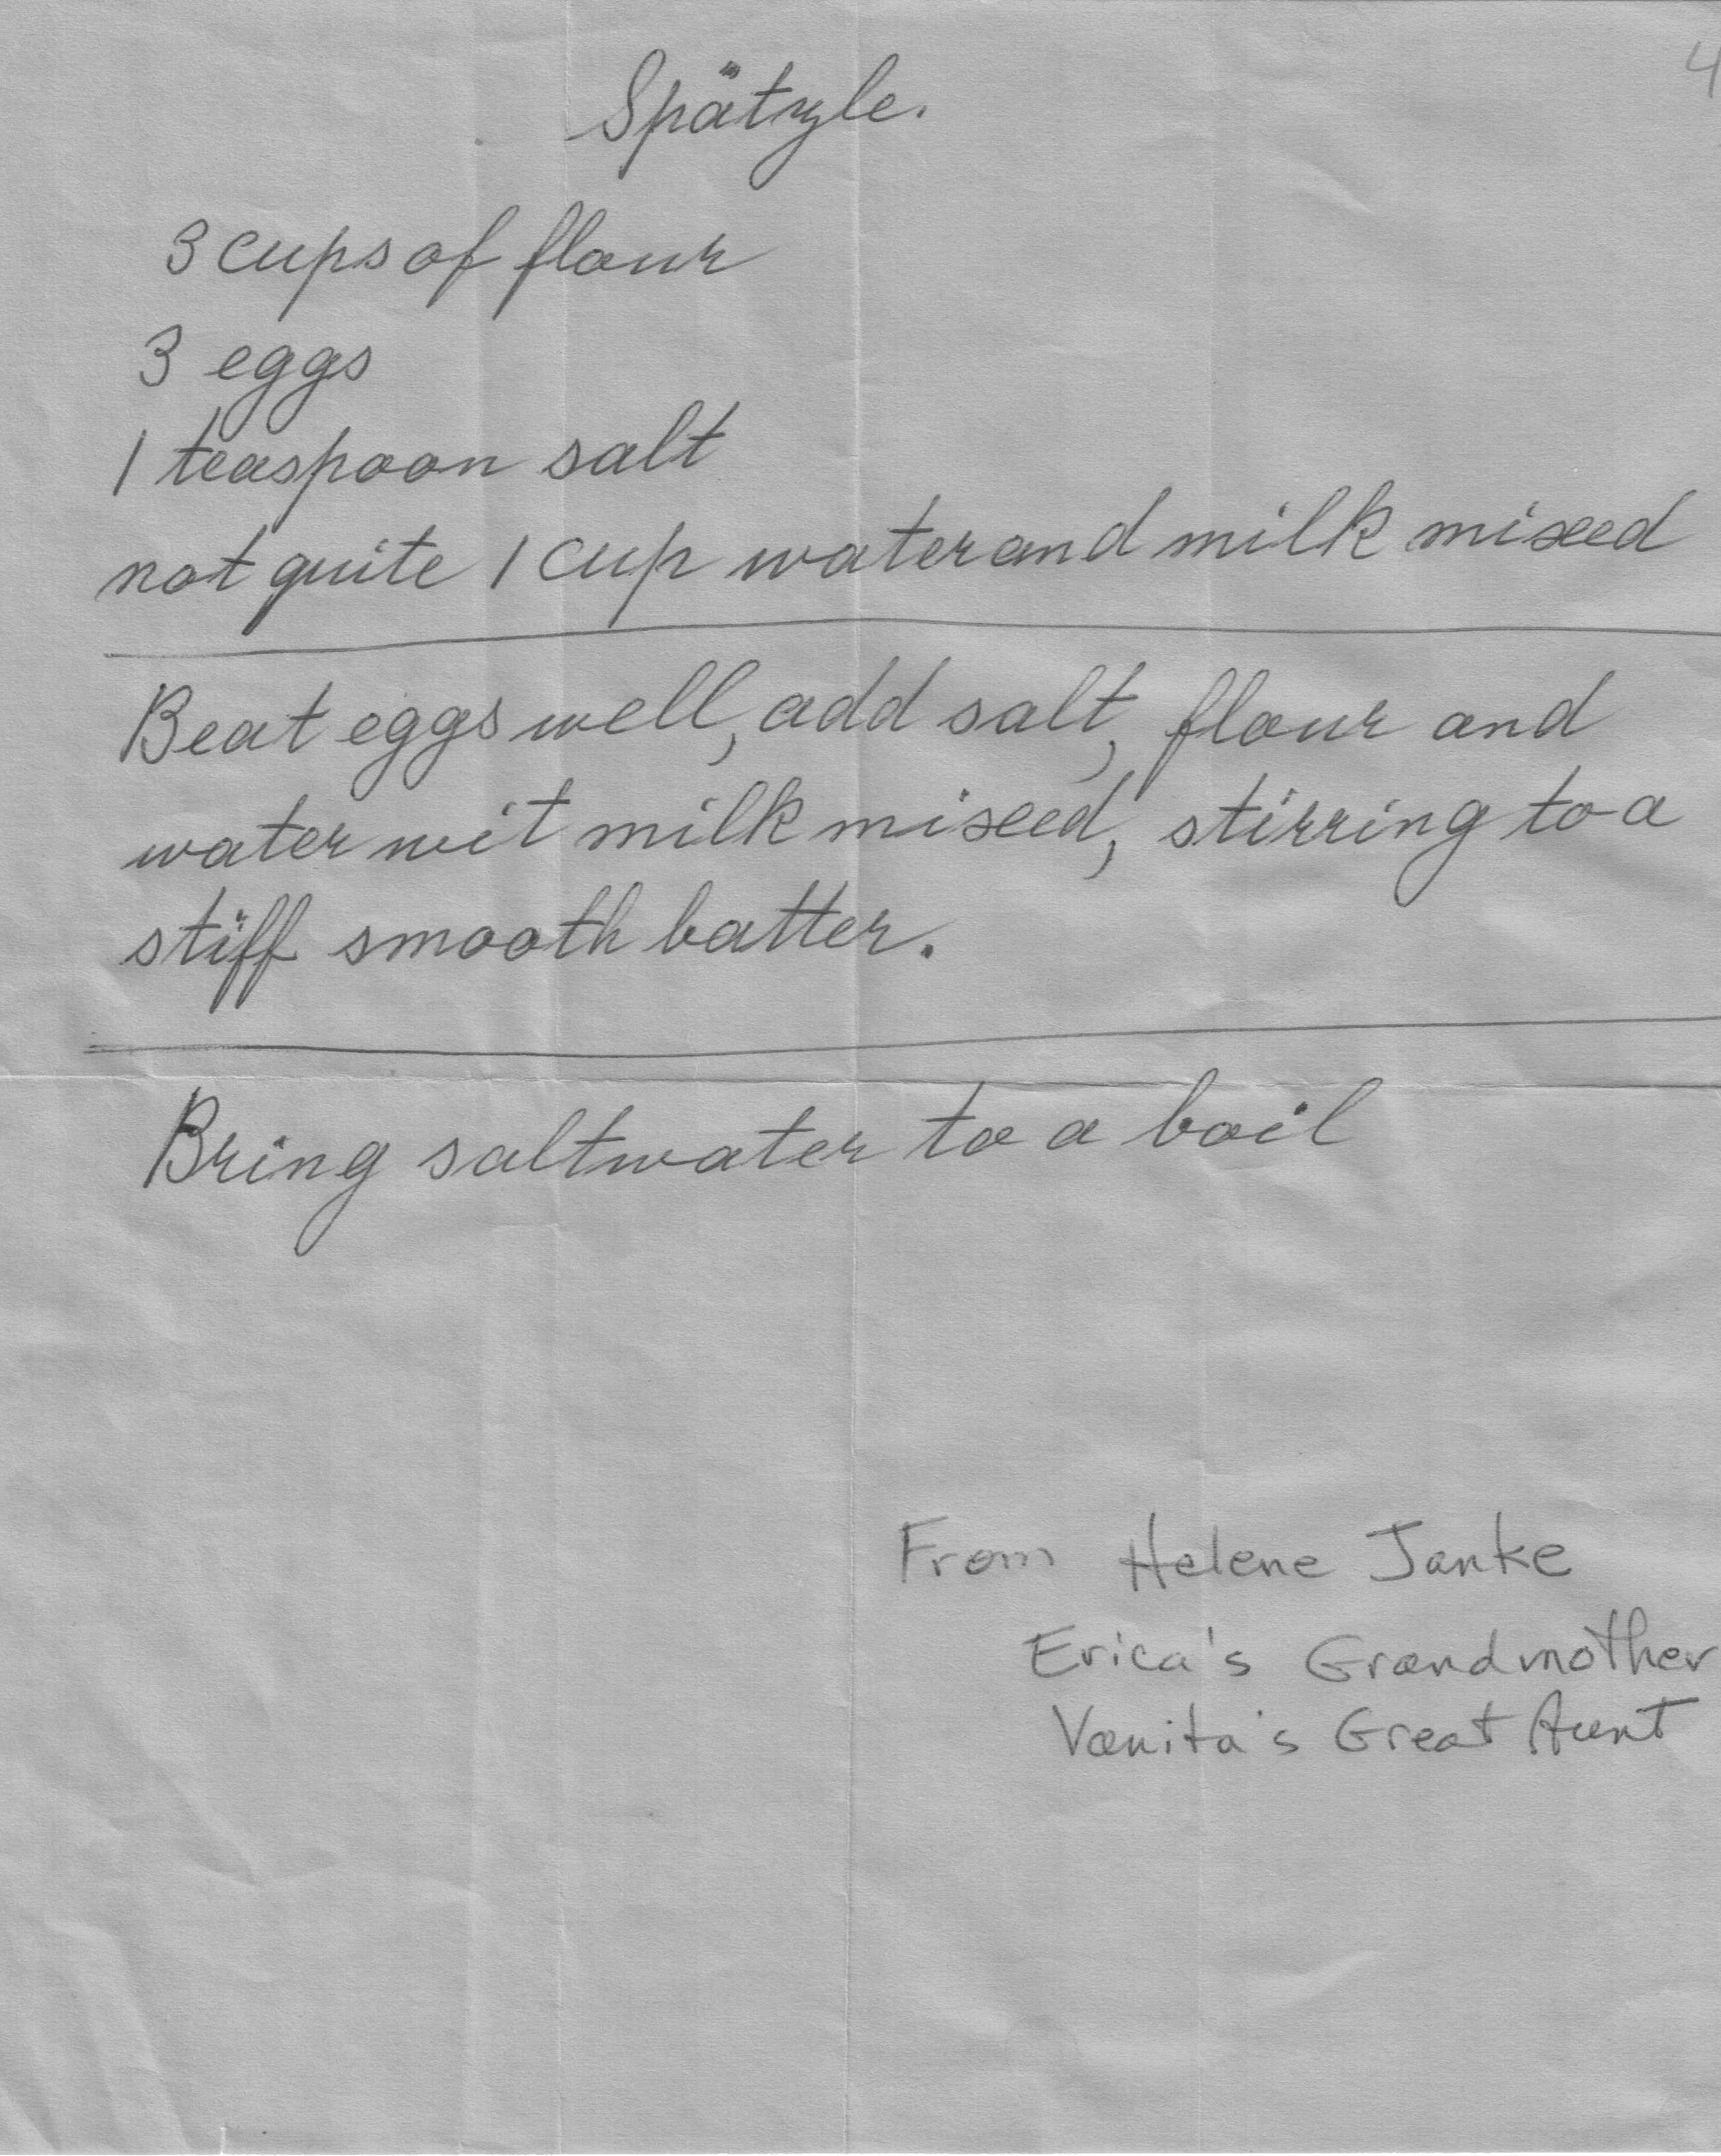 4
Spätzle.
3 cups of flour
3 eggs
1 teaspoon salt
not quite 1 cup water and milk mixed
Beat eggs well, add salt, flour and
water wit milk mixed, stirring to a
stiff smooth batter.
Bring saltwater to a boil
From Helene Janke
Erica's Grandmother
Vanita's Great Aunt